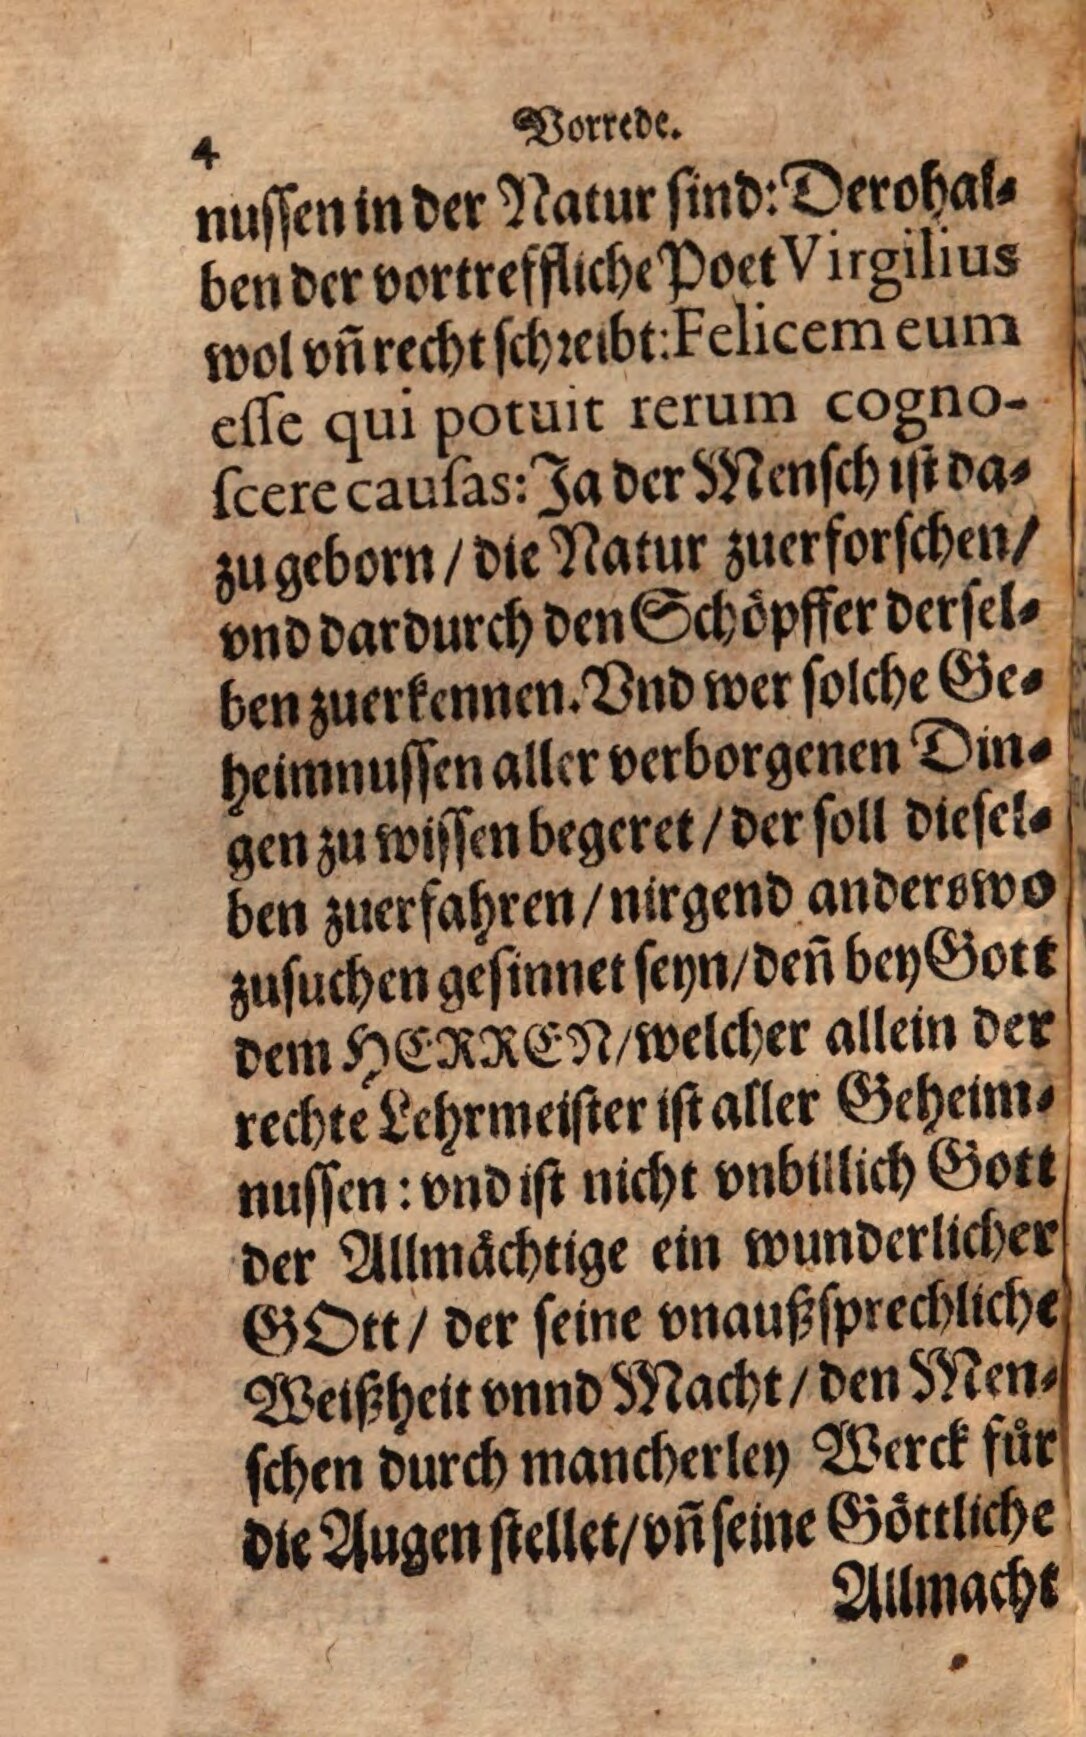 4
Vorrede.
nussen in der Natur sind: Derohal-
ben der vortreffliche Poet Virgilius
wol vñ recht schreibt: Felicem eum
esse qui potuit rerum cogno-
scere causas: Ja der Mensch ist da-
zu geborn / die Natur zuerforschen/
vnd dardurch den Schöpffer dersel-
ben zuerkennen. Vnd wer solche Ge-
heimnussen aller verborgenen Din-
gen zu wissen begeret / der soll diesel-
ben zuerfahren / nirgend anderswo
zusuchen gesinnet seyn/ deñ bey Gott
dem HERREN/ welcher allein der
rechte Lehrmeister ist aller Geheim-
nussen: vnd ist nicht vnbillich Gott
der Allmächtige ein wunderlicher
GOtt / der seine vnaußsprechliche
Weißheit vnnd Macht / den Men-
schen durch mancherley Werck für
die Augen stellet/ vñ seine Göttliche
Allmacht